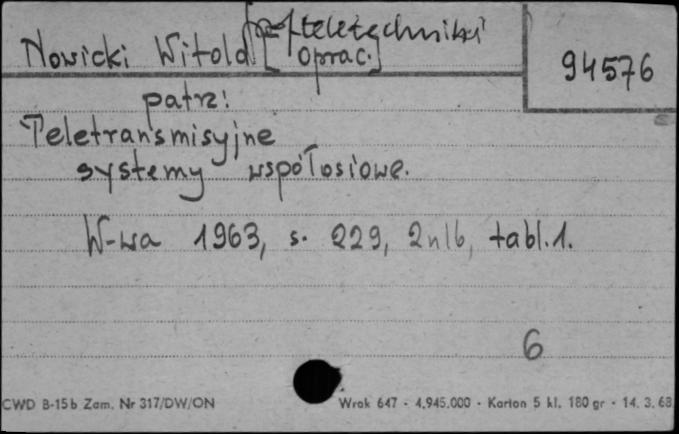 Nowicki Witold [teletechniki
oprac.]
94576
patrz:
Teletransmisyjne
systemy współosiowe.
W-wa 1963, s. 229, 2nlb, tabl.1.
6
CWD B-15b Zam. Nr 317/DW/ON Wrak 647 - 4.945.000 - Karton 5 kl. 180 gr - 14. 3. 68